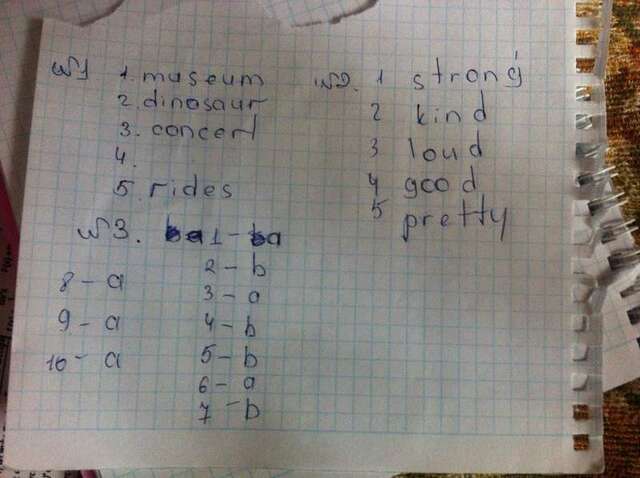 №1 1. museum
2. dinosaur
3. concert
4.
5. rides
№2. 1 strong
2 kind
3 loud
4 good
5 pretty
№3. 1 - a
2 - b
3 - a
4 - b
5 - b
6 - a
7 - b
8 - a
9 - a
10 - a